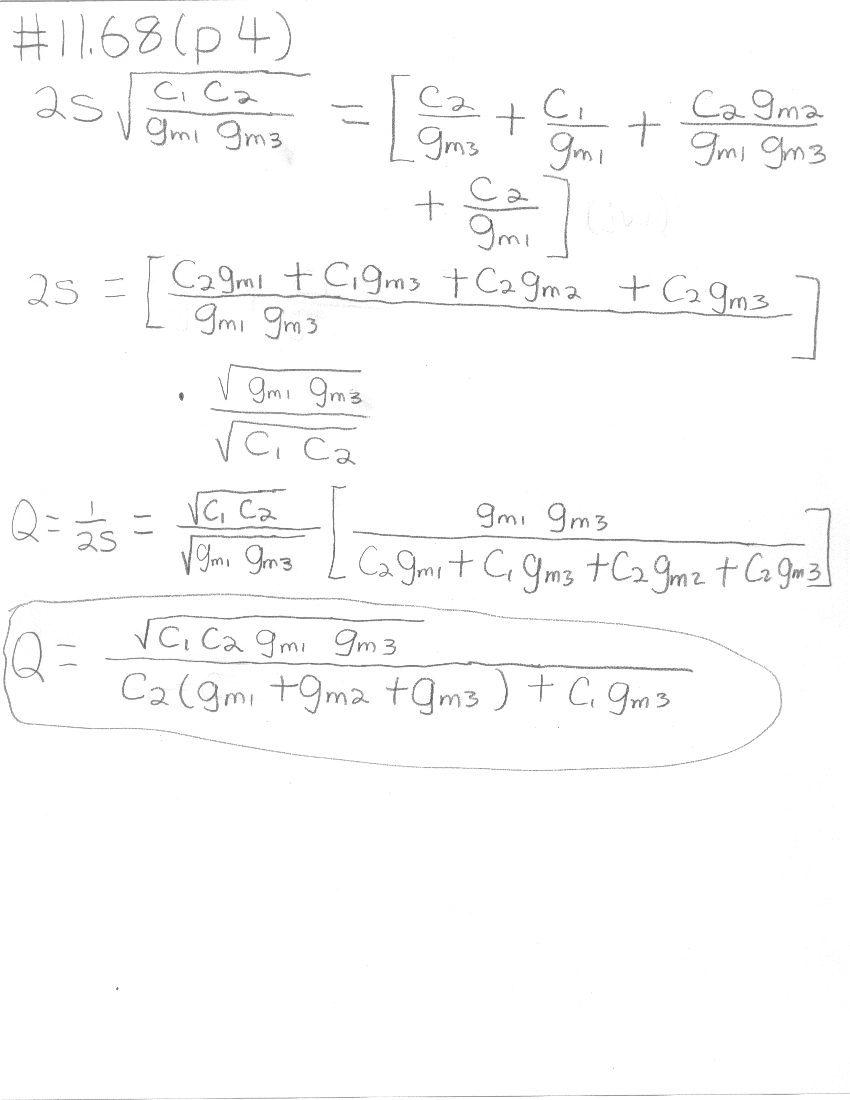 #11.68(p 4)
2S √(C1 C2 / gm1 gm3) = [C2/gm3 + C1/gm1 + C2 gm2/gm1 gm3
+ C2/gm1]
2S = [(C2gm1 + C1gm3 + C2gm2 + C2gm3) / gm1 gm3]
· √(gm1 gm3) / √(C1 C2)
Q = 1/2S = √(C1 C2) / √(gm1 gm3) [gm1 gm3 / (C2gm1 + C1gm3 + C2gm2 + C2gm3)]
Q = √(C1 C2 gm1 gm3) / (C2(gm1 + gm2 + gm3) + C1 gm3)